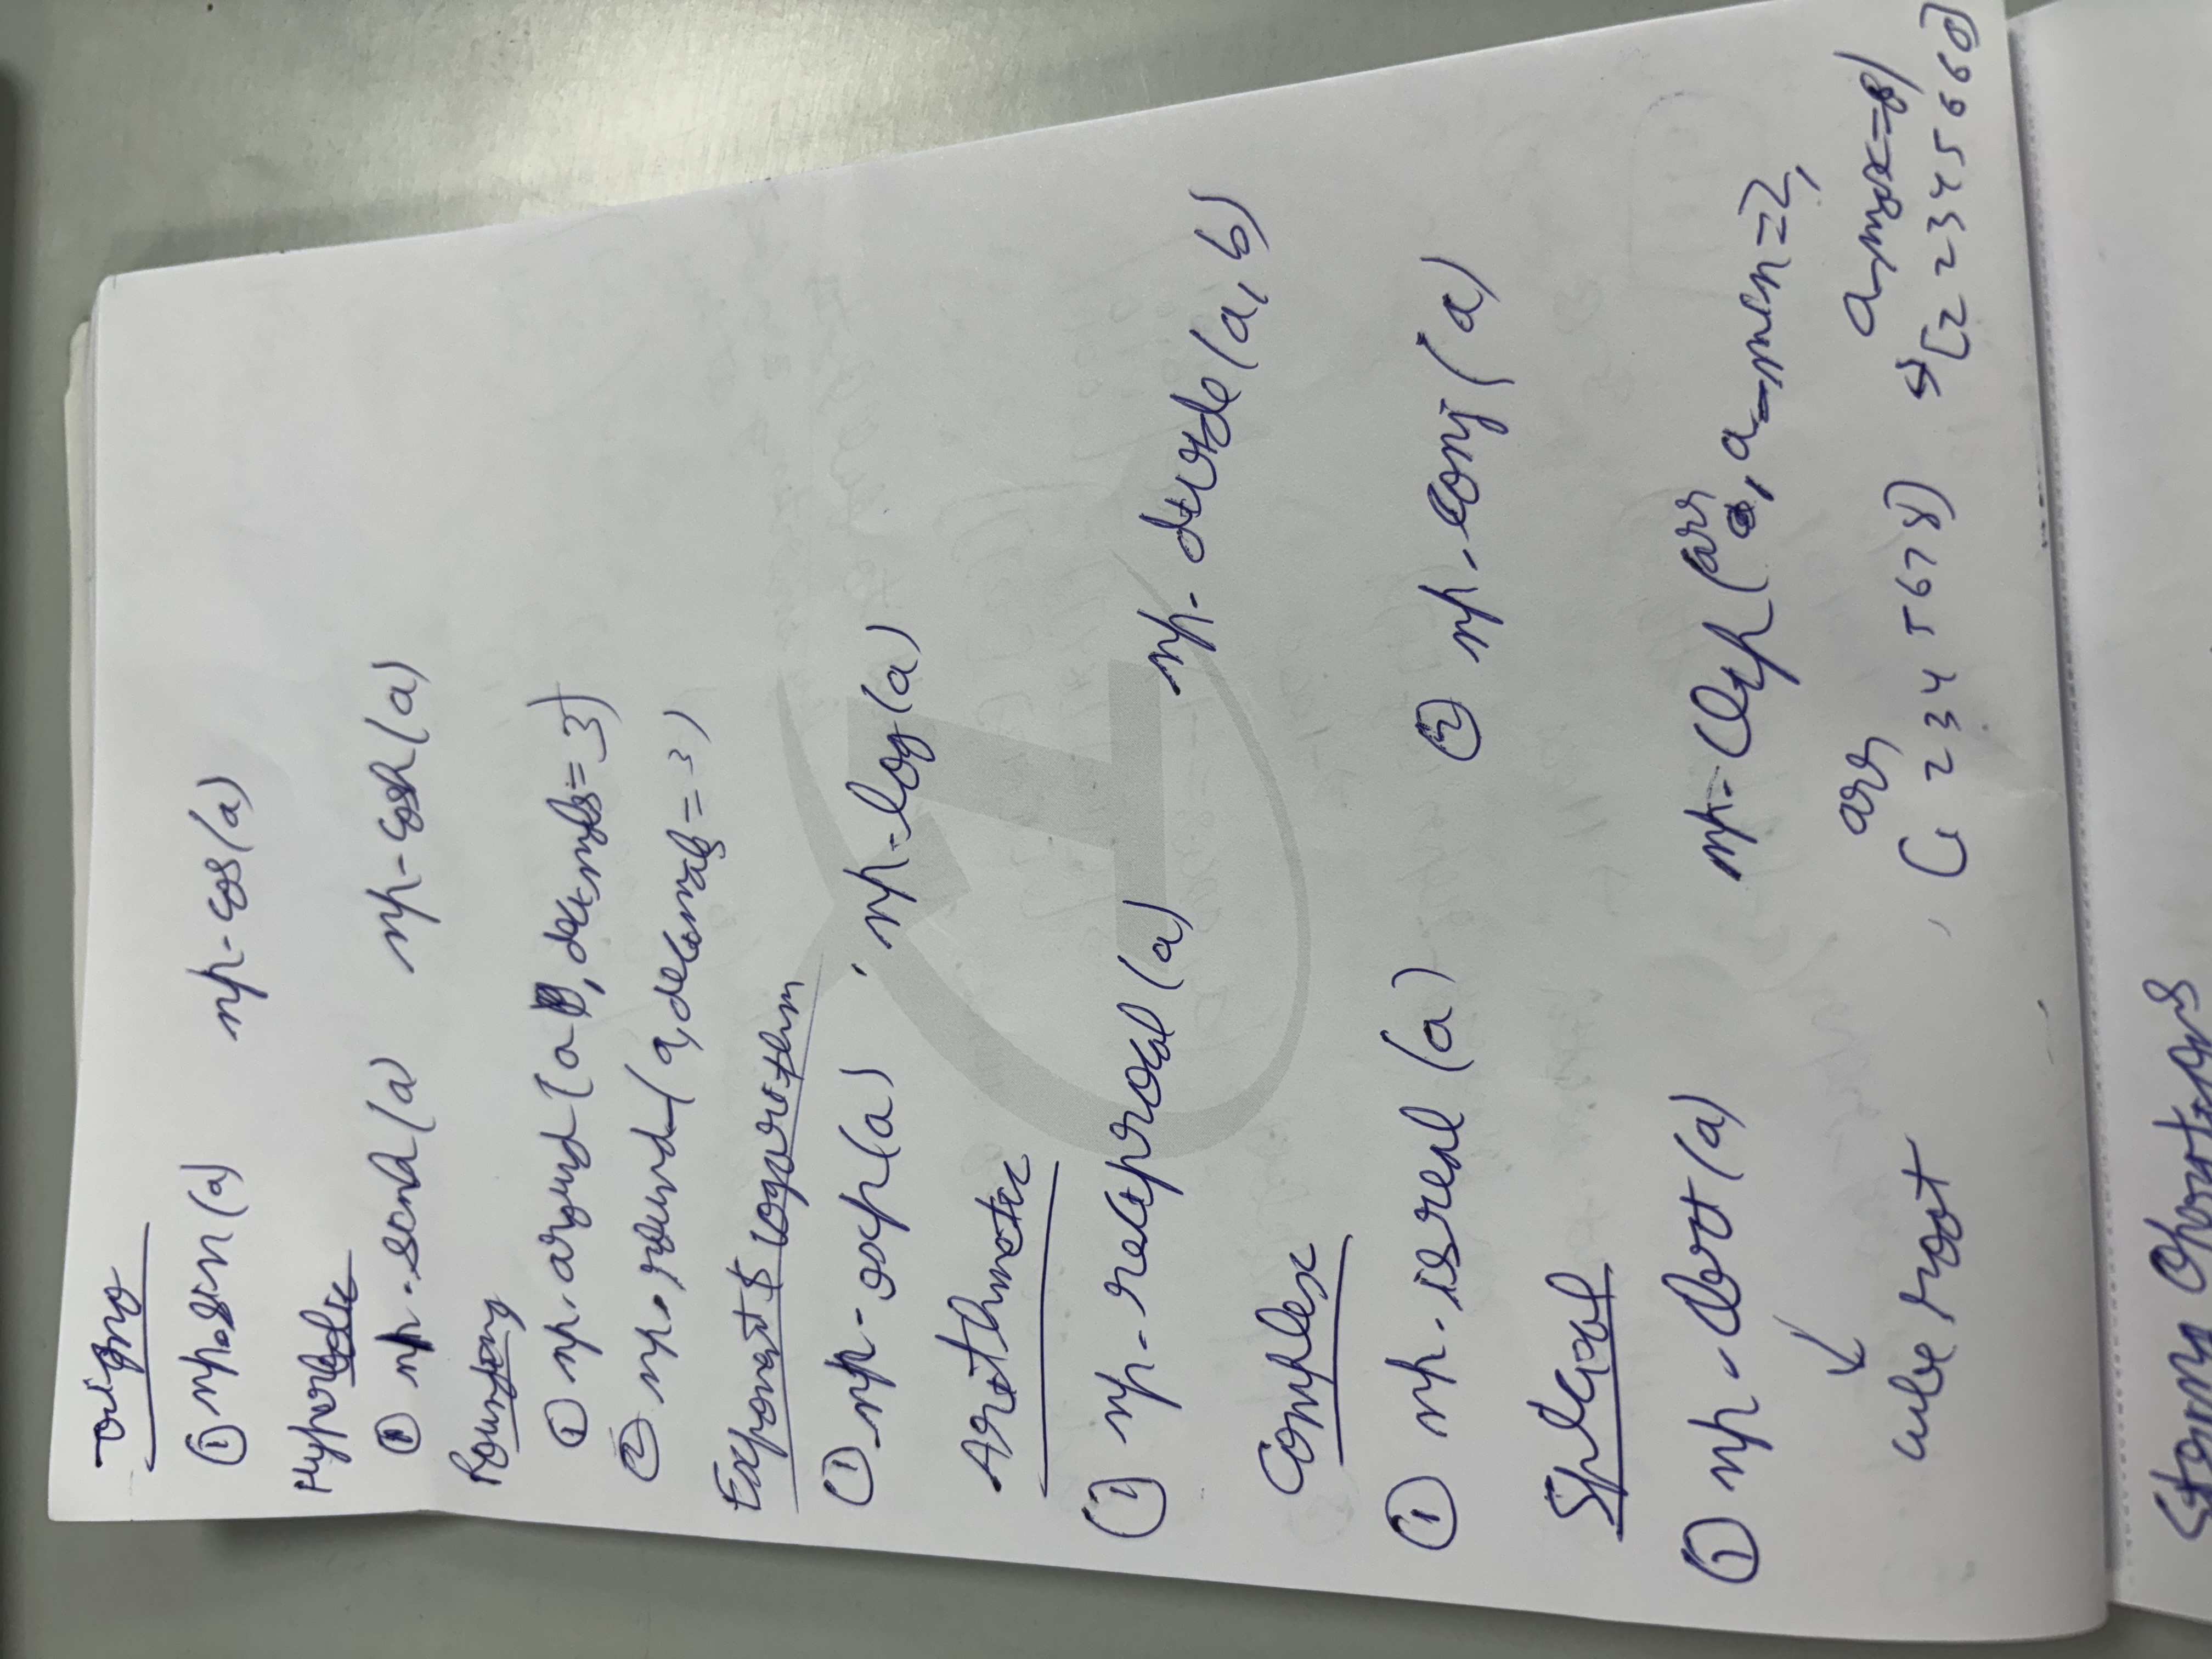 Trigno
① np.sin(a) np.cos(a)
Hyperbolic
① np.sinh(a) np.cosh(a)
Rounding
① np.around(a, decimals=3)
② np.round_(a, decimals=3)
Exponent $ logarithm
① np.exp(a) np.log(a)
Arithmetic
① np.reciprocal(a) np.divide(a,b)
Complex
① np.isreal(a) ② np.conj(a)
Special
① np.cbrt(a) np.clip(arr, a_min=2,
a_max=6)
cube root
arr
[1 2 3 4 5 6 7 8] → [2 2 3 4 5 6 6 6]
String Operations